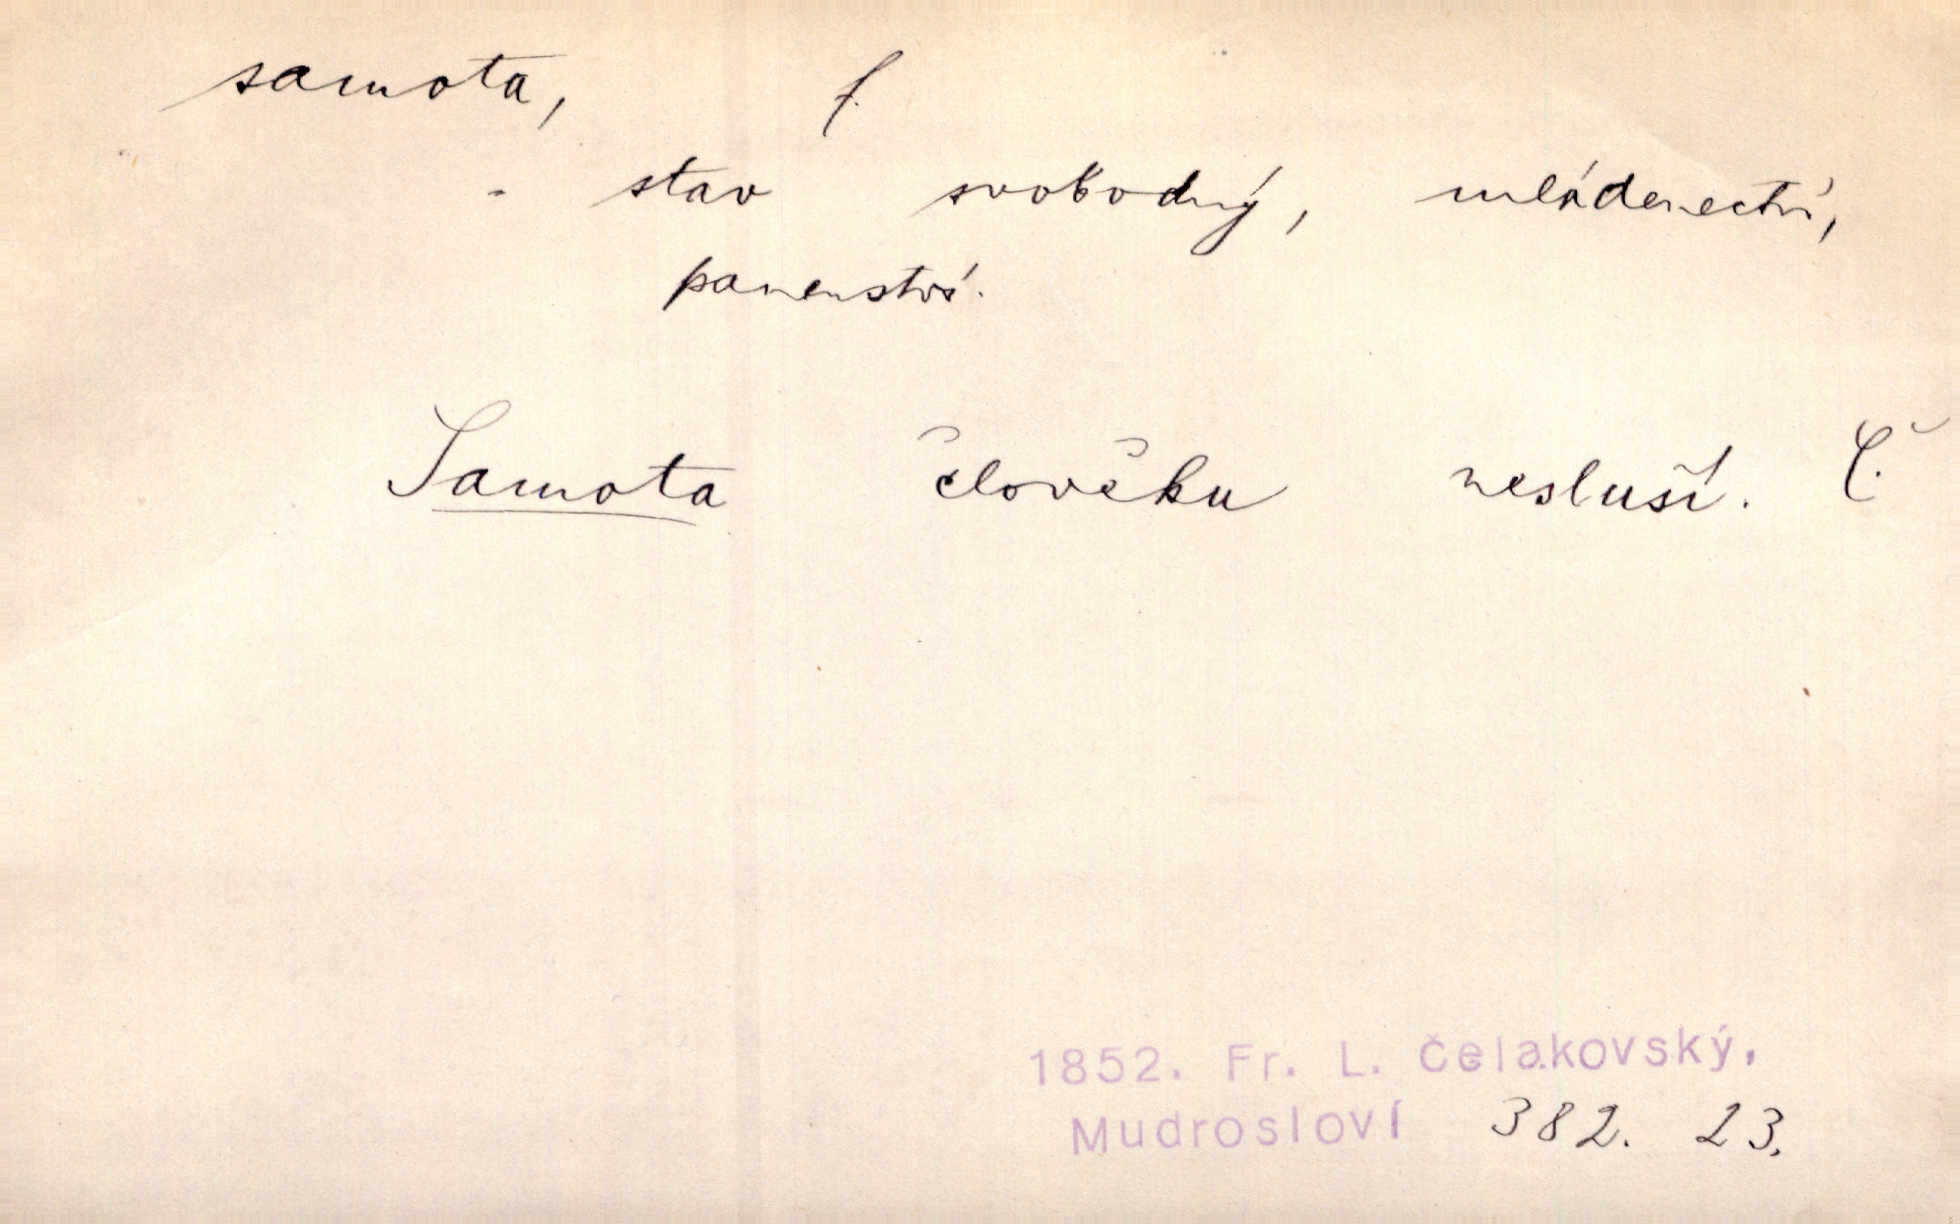 samota, f.
- stav svobodný, mládenectví,
panenství.
Samota člověku nesluší. Č.
1852. Fr. L. Čelakovský,
Mudrosloví 382. 23.